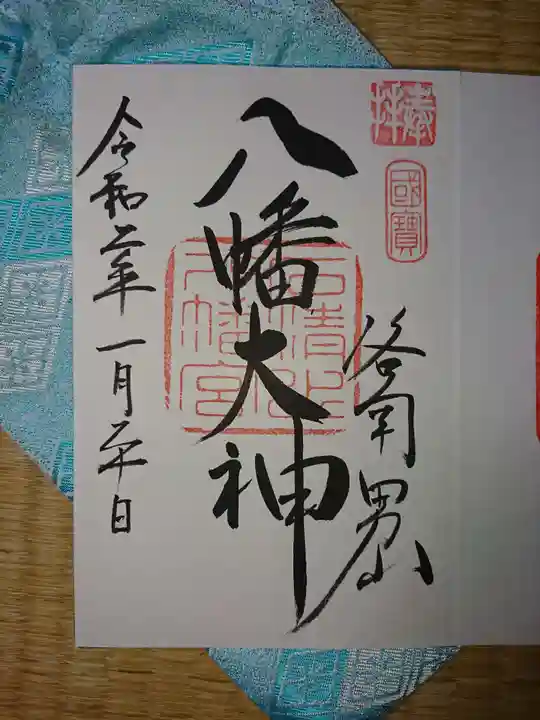 奉拝
國寶
洛南男山
八幡大神
石清水八幡宮
令和二年一月二十日